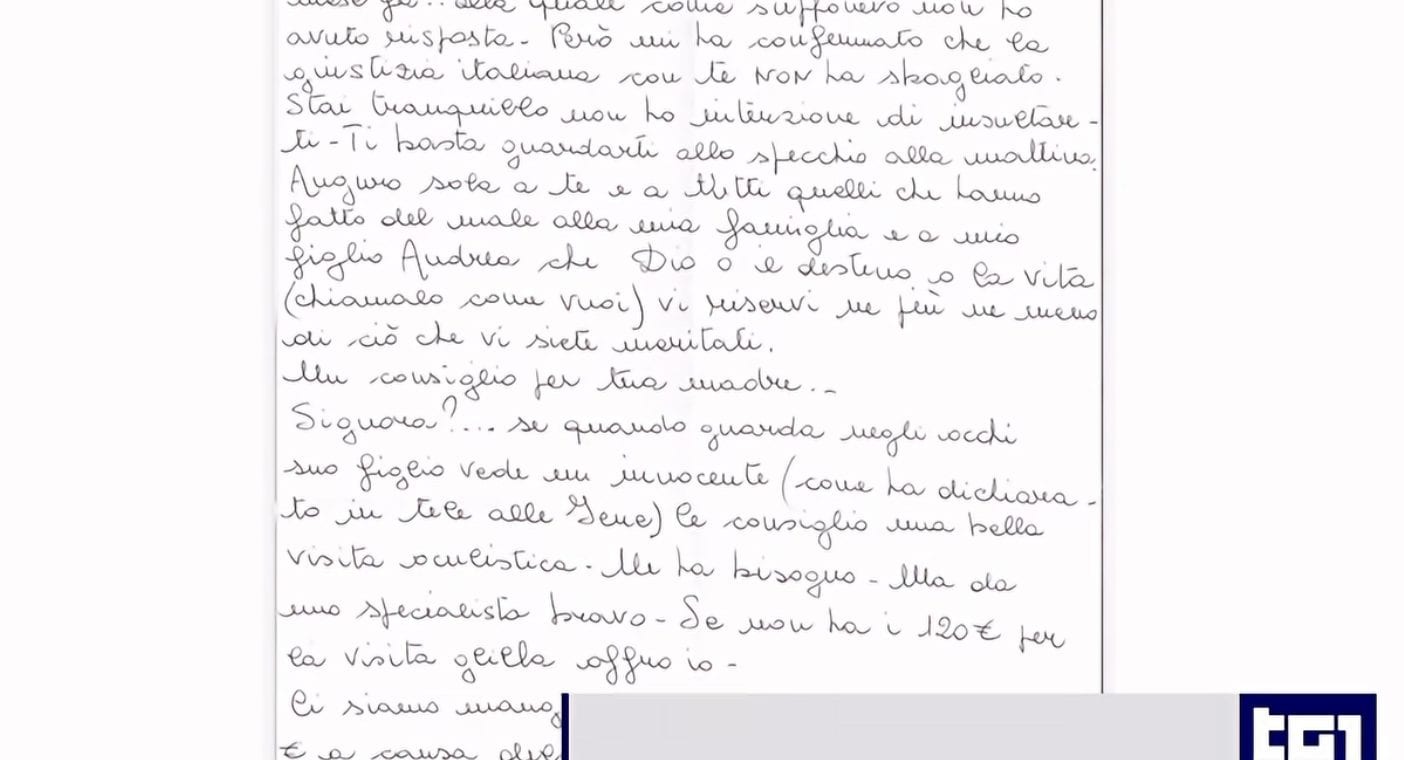 mese fa.. alla quale come supponevo non ho
avuto risposta - Però mi ha confermato che la
giustizia italiana con te NON ha sbagliato.
Stai tranquillo non ho intenzione di insultar-
ti - Ti basta guardarti allo specchio alla mattina.
Auguro solo a te e a tutti quelli che hanno
fatto del male alla mia famiglia e a mio
figlio Andrea che Dio o il destino o la vita
(chiamalo come vuoi) vi riservi ne più ne meno
di ciò che vi siete meritati.
Un consiglio per tua madre..-
Signora?... se quando guarda negli occhi
suo figlio vede un innocente (come ha dichiara-
to in tele alle Iene) le consiglio una bella
visita oculistica - Ne ha bisogno - Ma da
uno specialista bravo - Se non ha i 120€ per
la visita gliela offro io -
Ci siamo mang
€ a causa
TG1